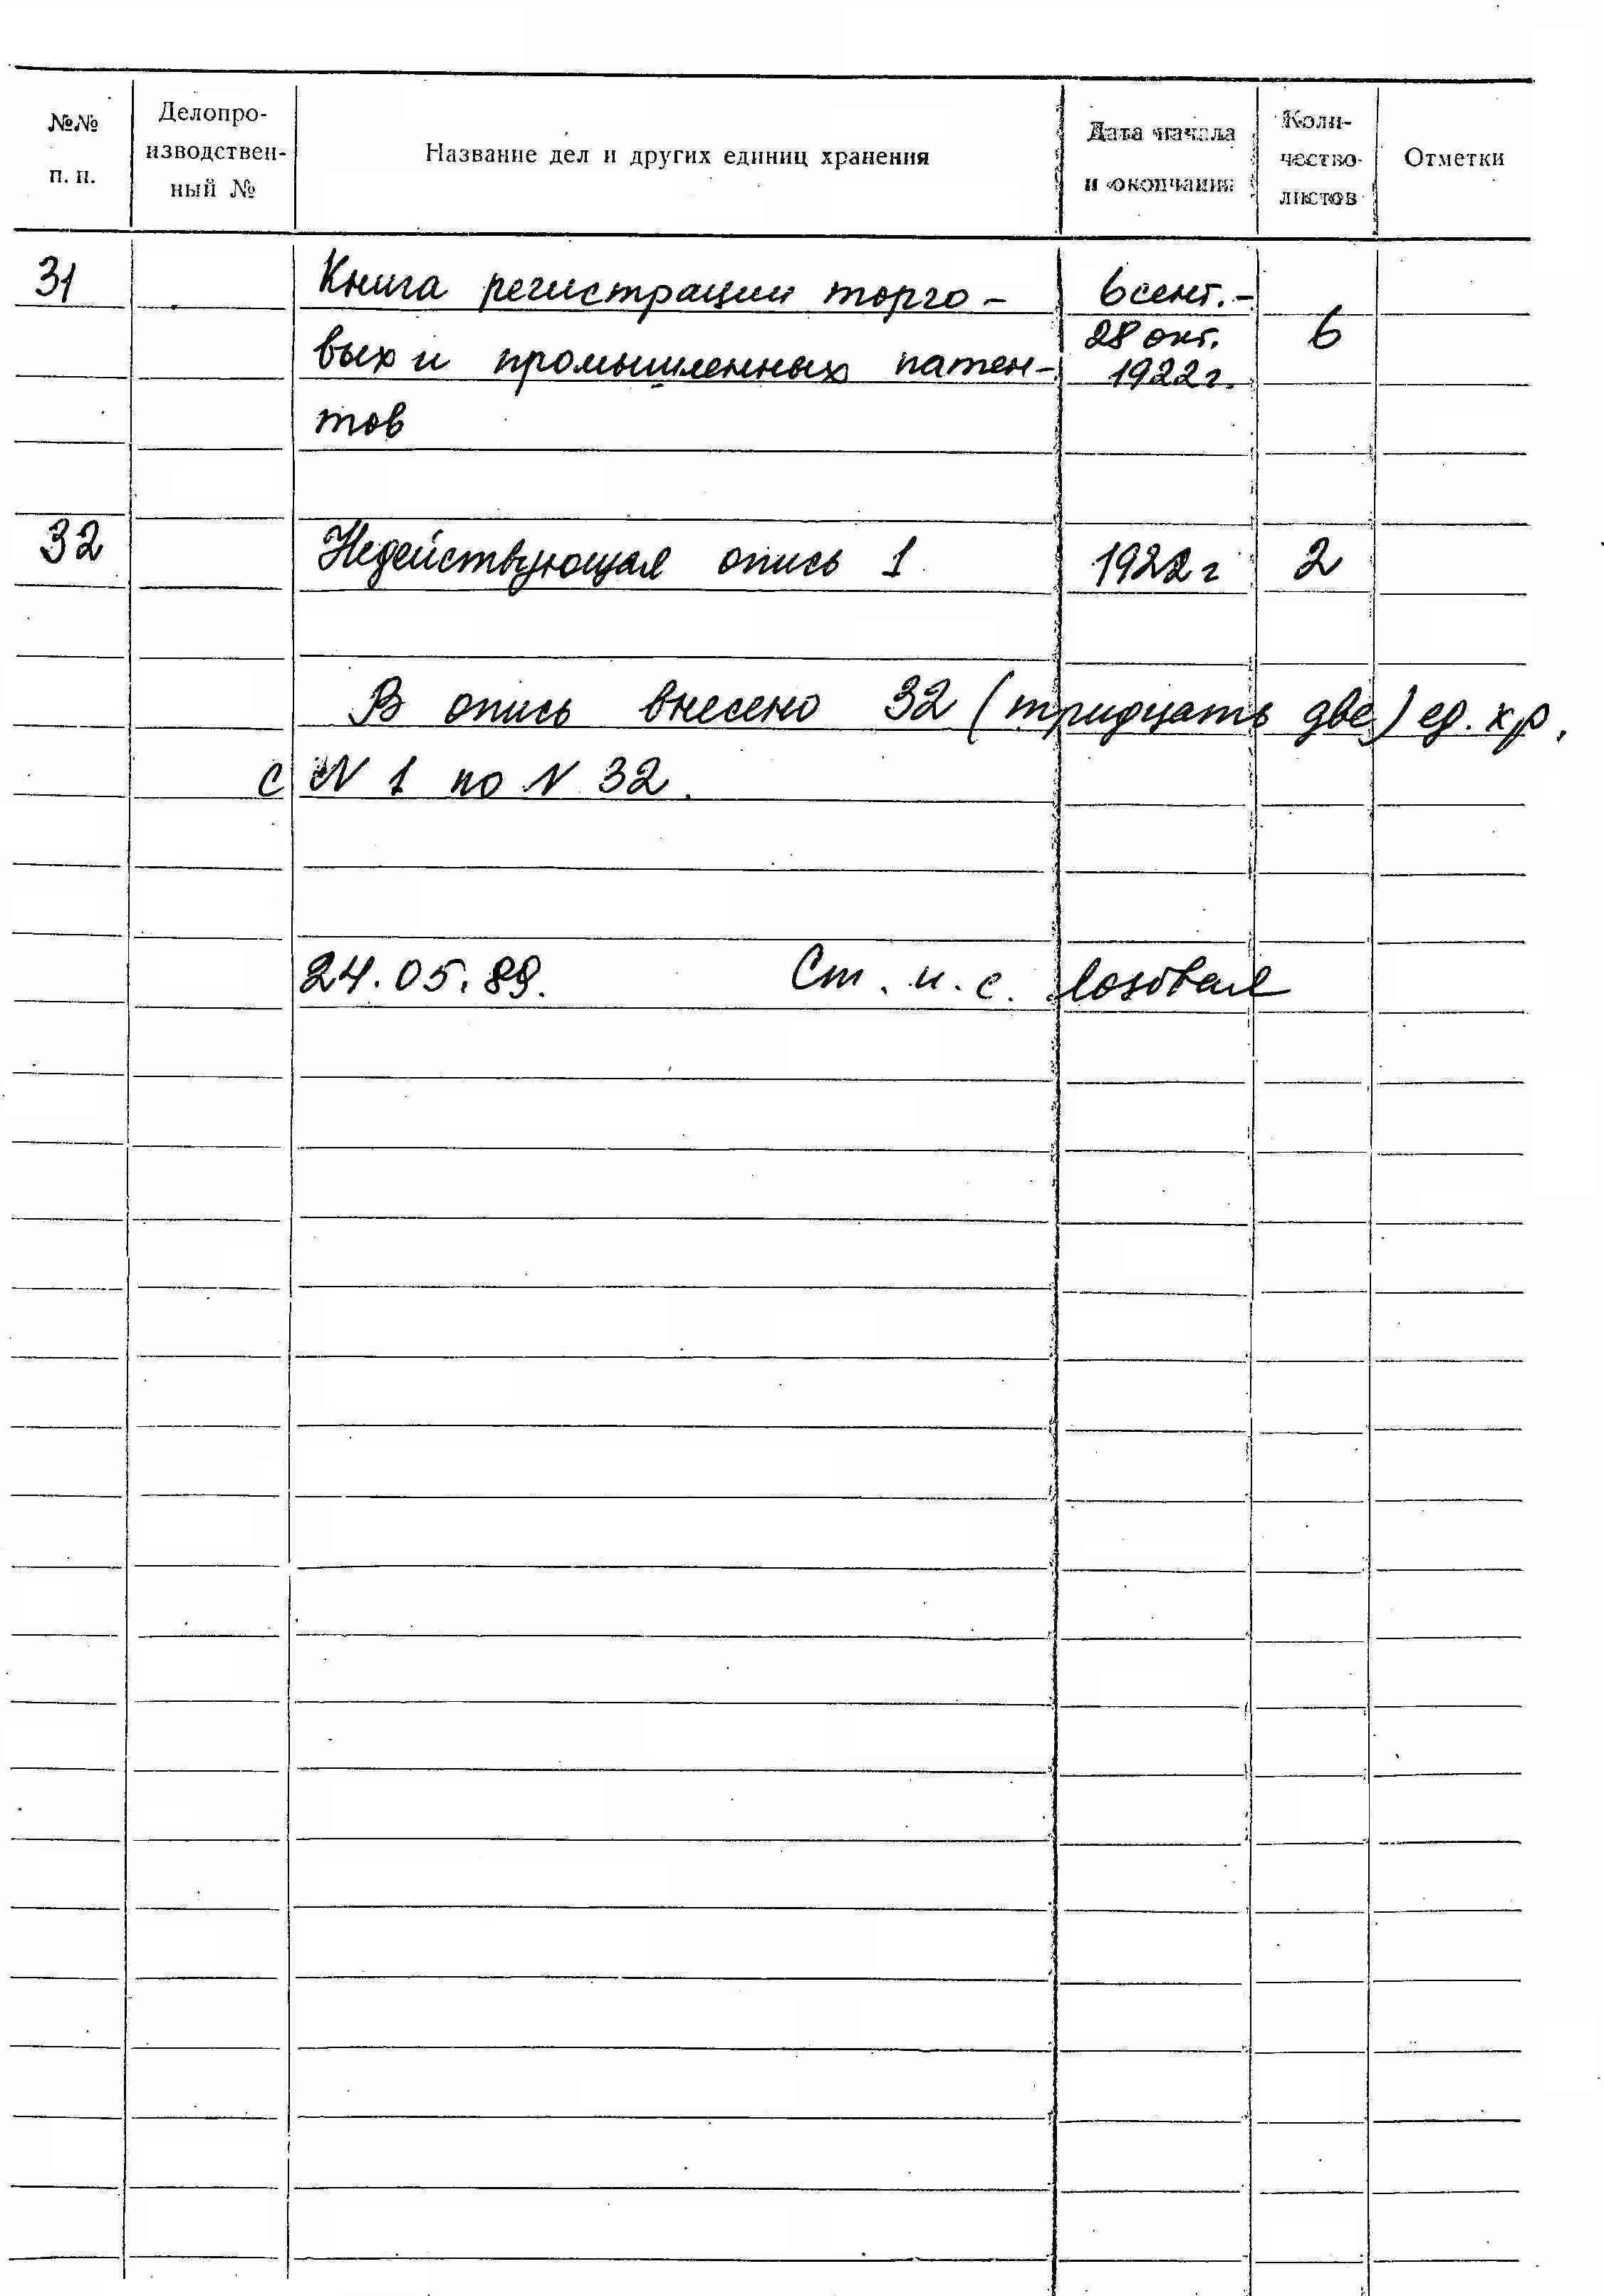 №№ п. п.
Делопро-
изводствен-
ный №
Название дел и других единиц хранения
Дата начала
и окончания
Коли-
чество
листов
Отметки
31 Книга регистрации торго- 6 сент.-
28 окт. 6
вых и промышленных патен- 1922 г.
тов
32 Недействующая опись 1 1922 г 2
В опись внесено 32 (тридцать две) ед. хр.
с N 1 по N 32.
24.05.89. Ст. н. с. Лозовая